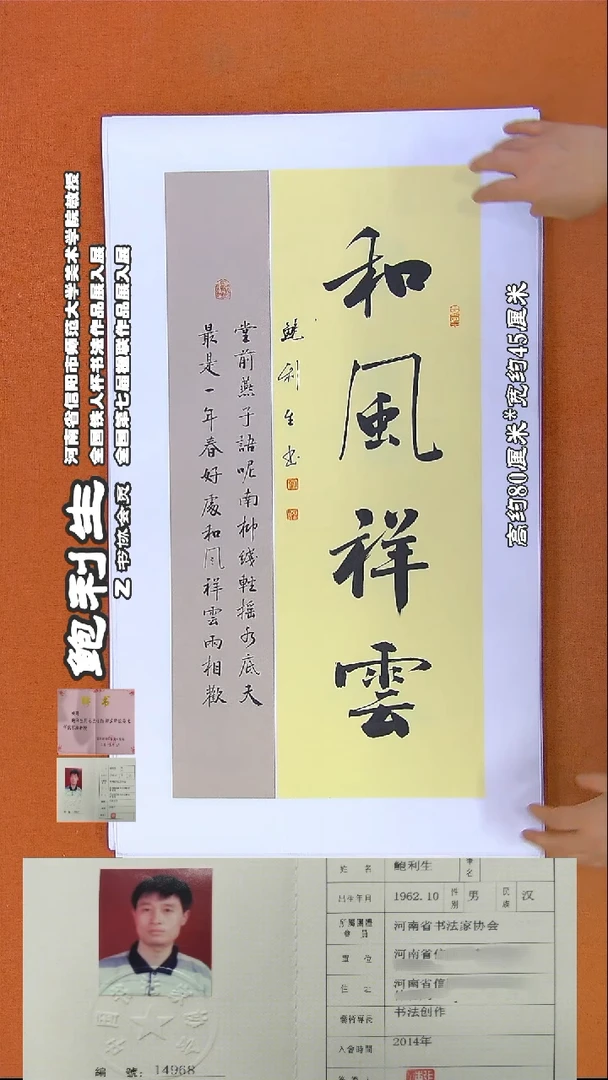 和風祥雲
鮑利生書
堂前燕子語呢南柳綫輕搖水底天
最是一年春好處和風祥雲兩相歡
高约80厘米*宽约45厘米
河南省信阳市碾活大学美术学院教授
全国铁人杯书法作品展入展
全国第七届楹联作品展入展
鲍利生
Z 书协会员
姓 名 鲍利生
出生年月 1962.10 性别 男 民族 汉
所属團體會員 河南省书法家协会
單 位 河南省信
住 址 河南省信
藝術專長 书法创作
入會時間 2014年
編 號: 14968